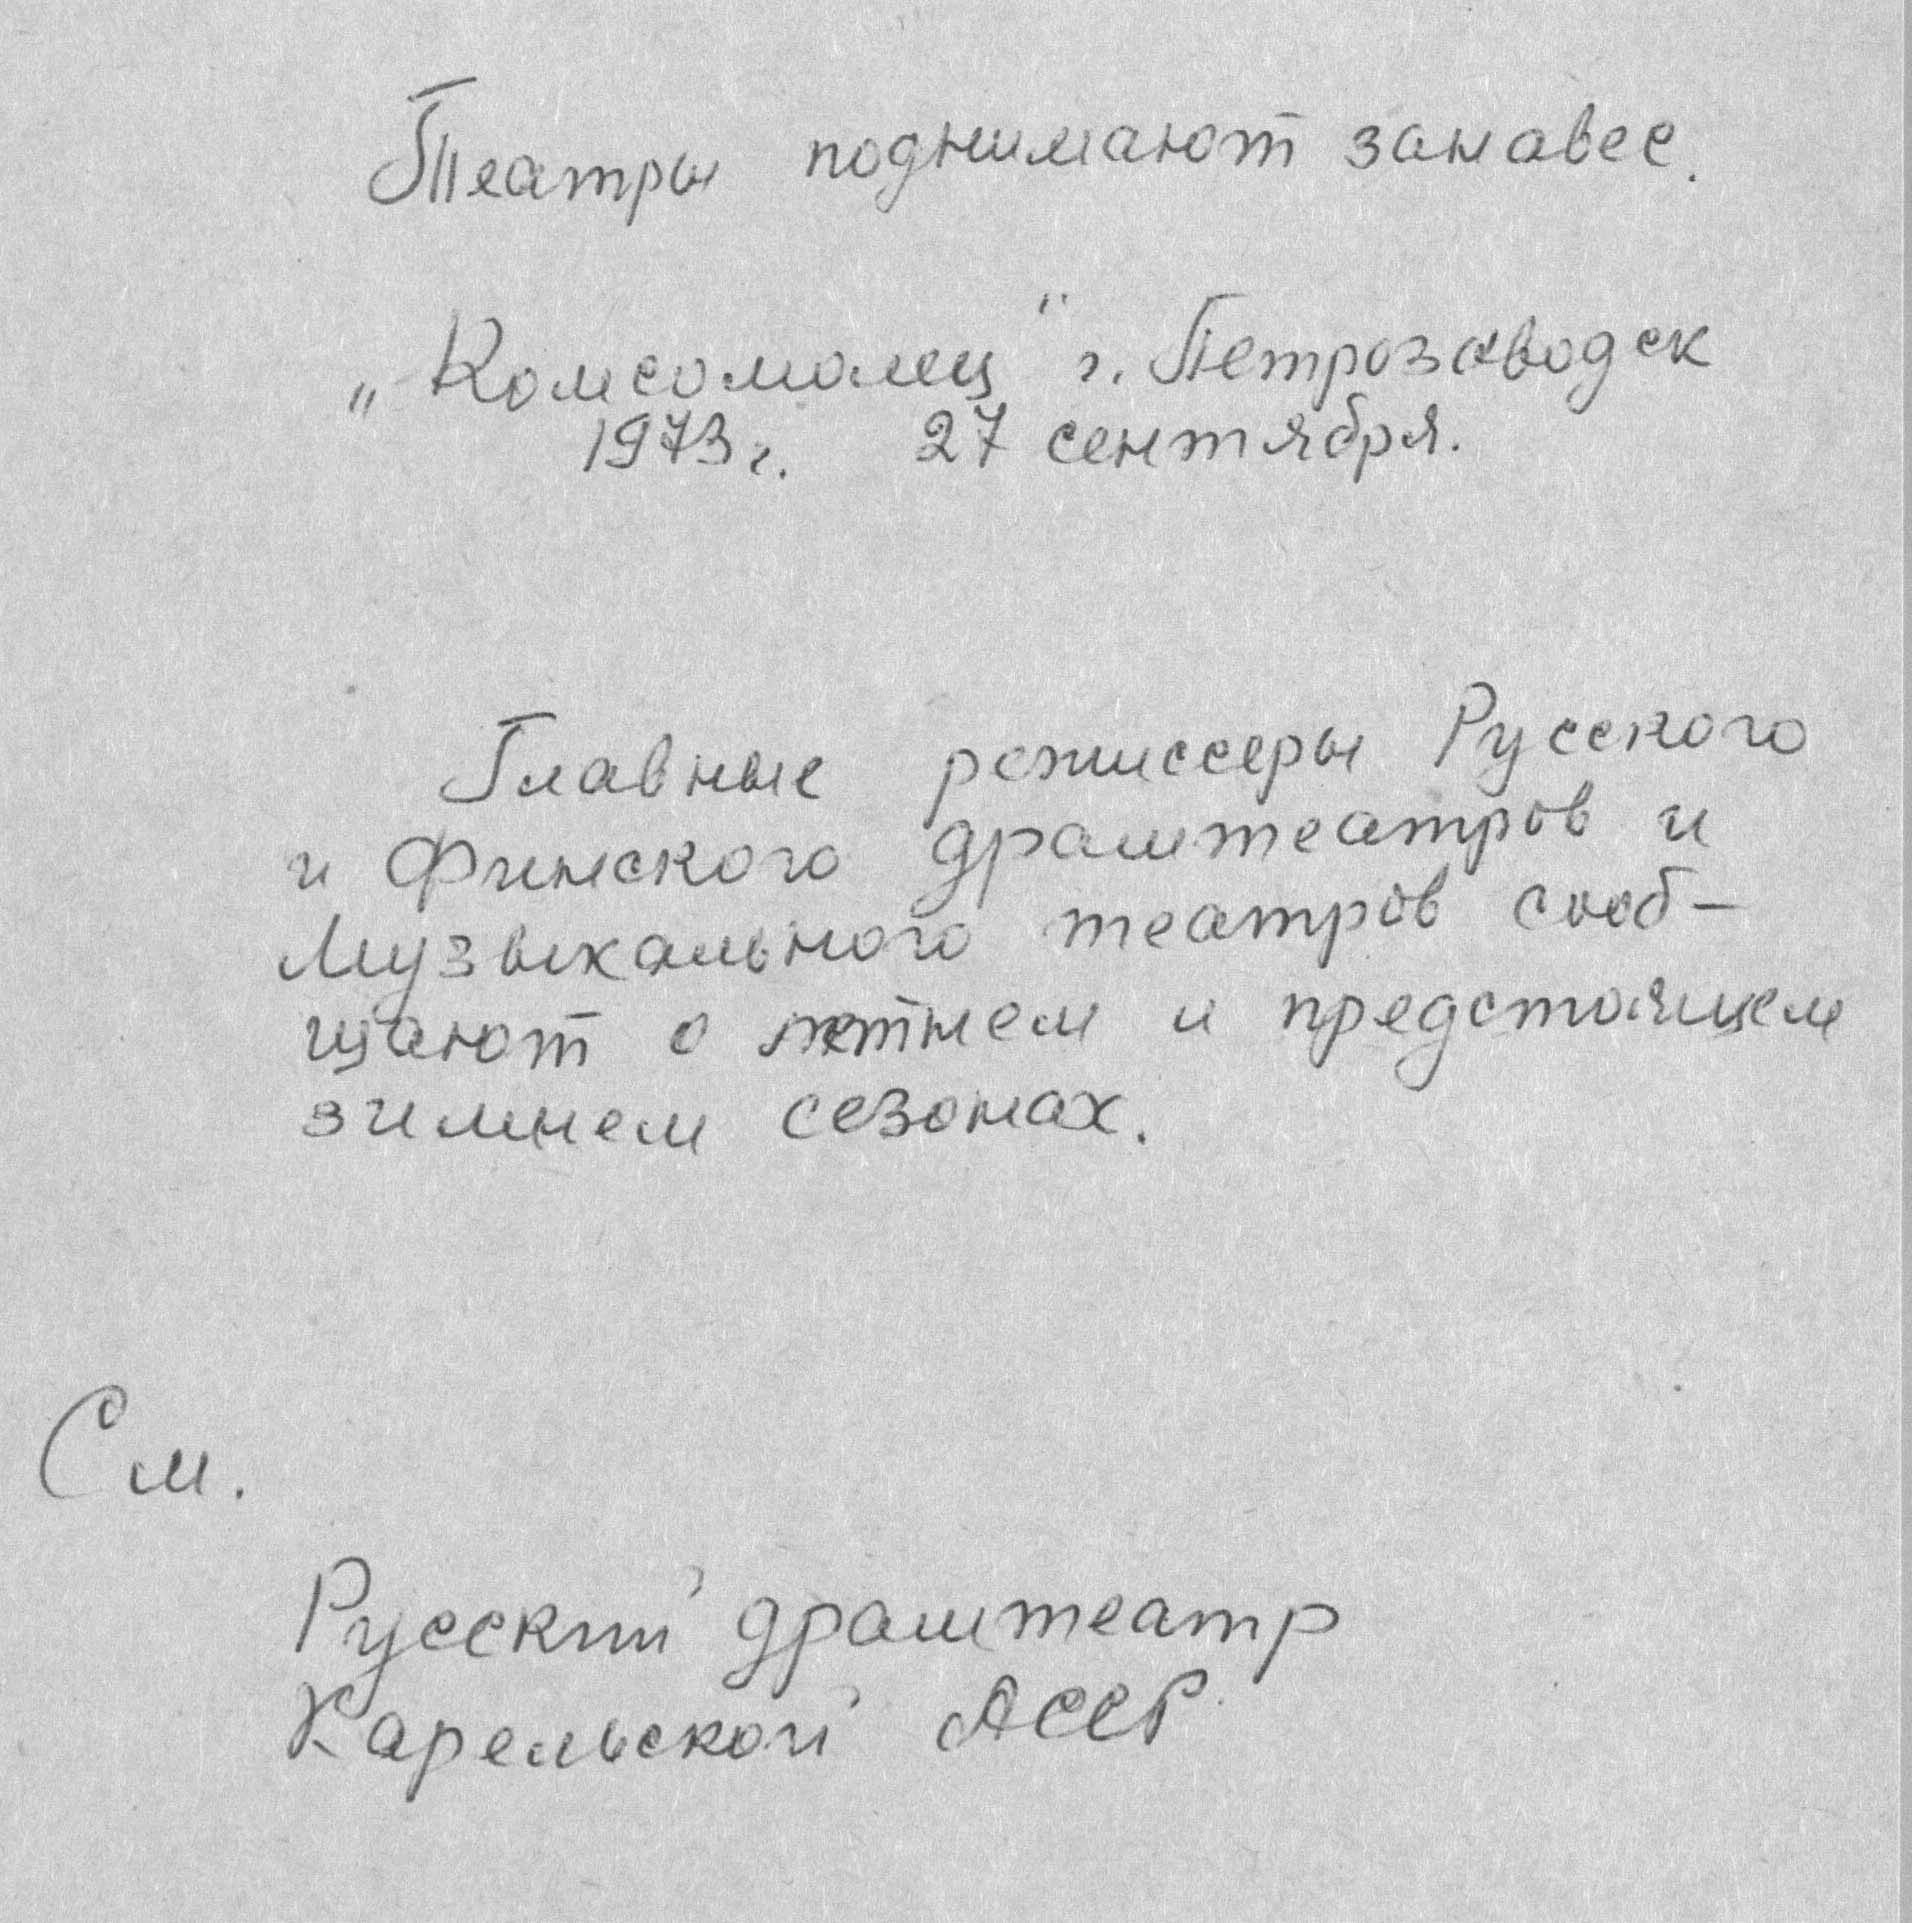 Театры поднимают занавес.
„Комсомолец" г. Петрозаводск
1973 г. 27 сентября.
Главные режиссеры Русского
и Финского драмтеатров и
Музыкального театров сооб-
щают о летнем и предстоящем
зимнем сезонах.
См.
Русский драмтеатр
Карельской АССР